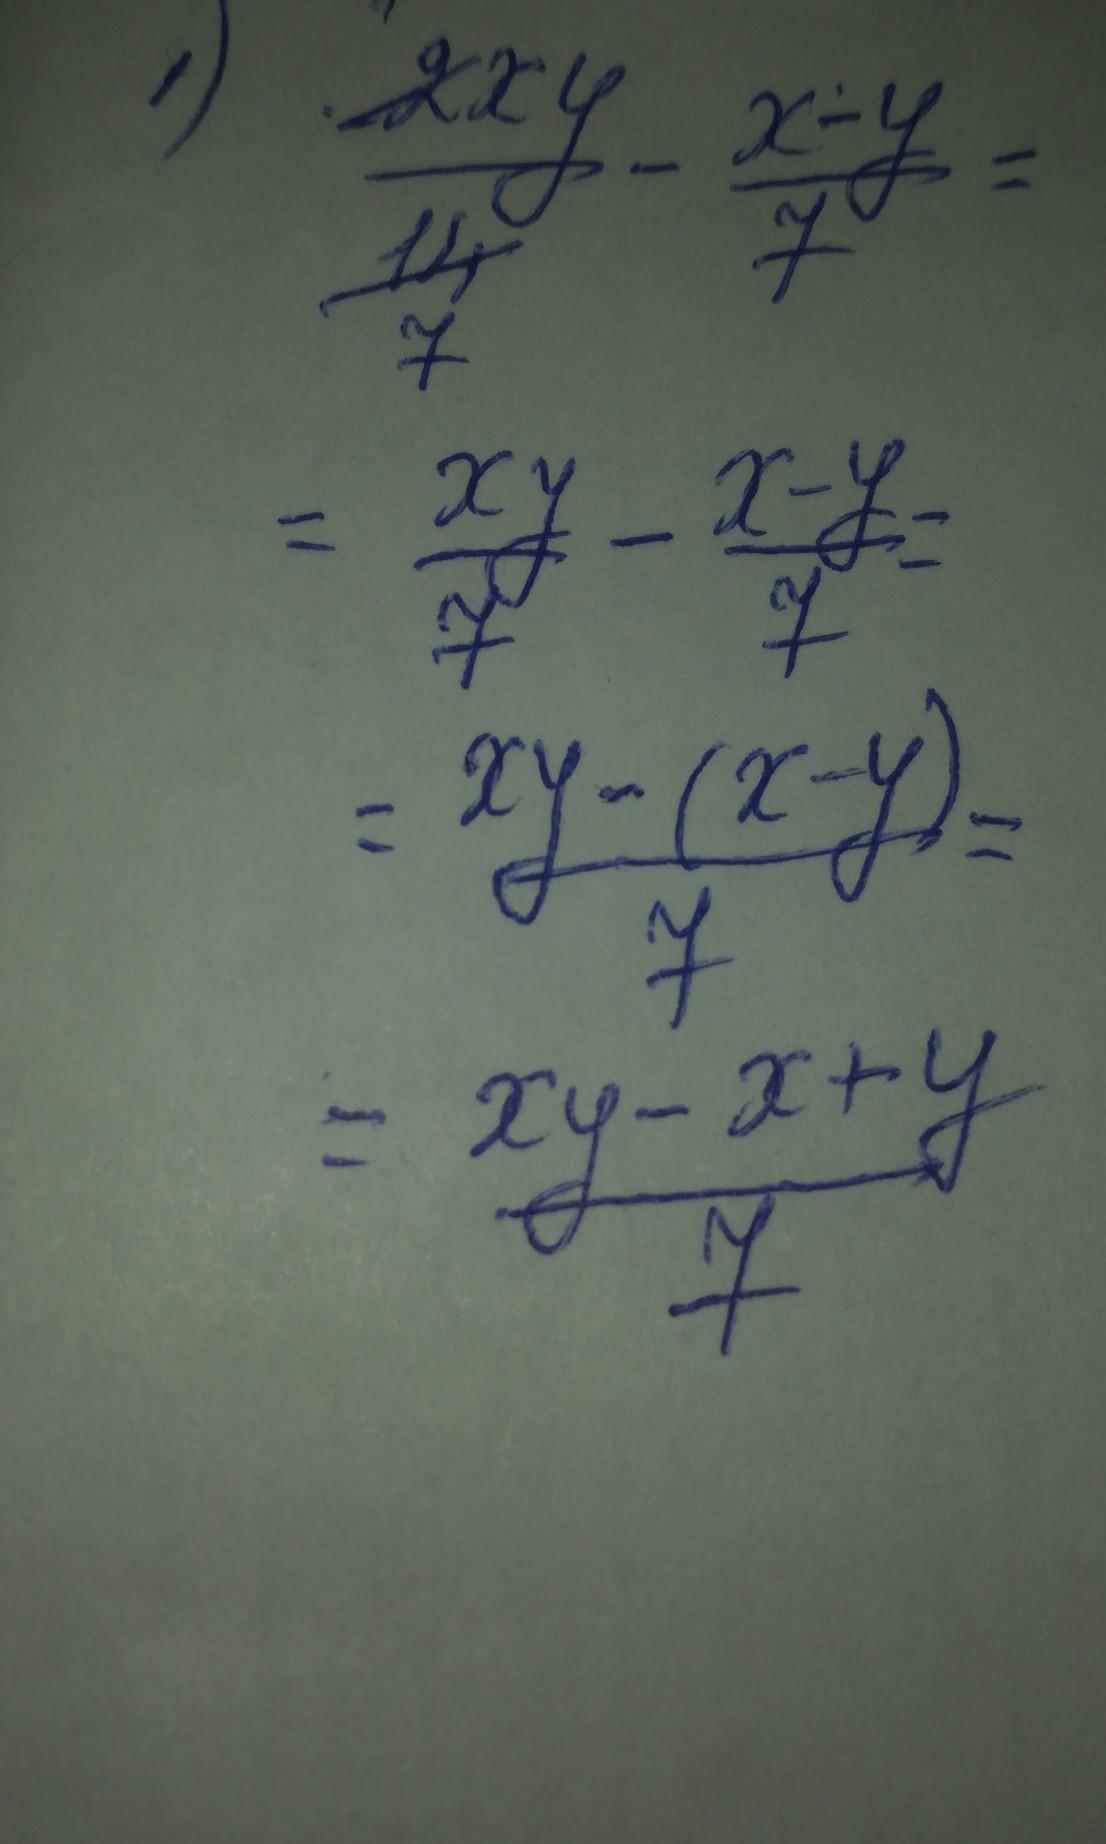 1) 2xy/14 7 - x-y/7 =
= xy/7 - x-y/7 =
= xy-(x-y)/7 =
= xy-x+y/7